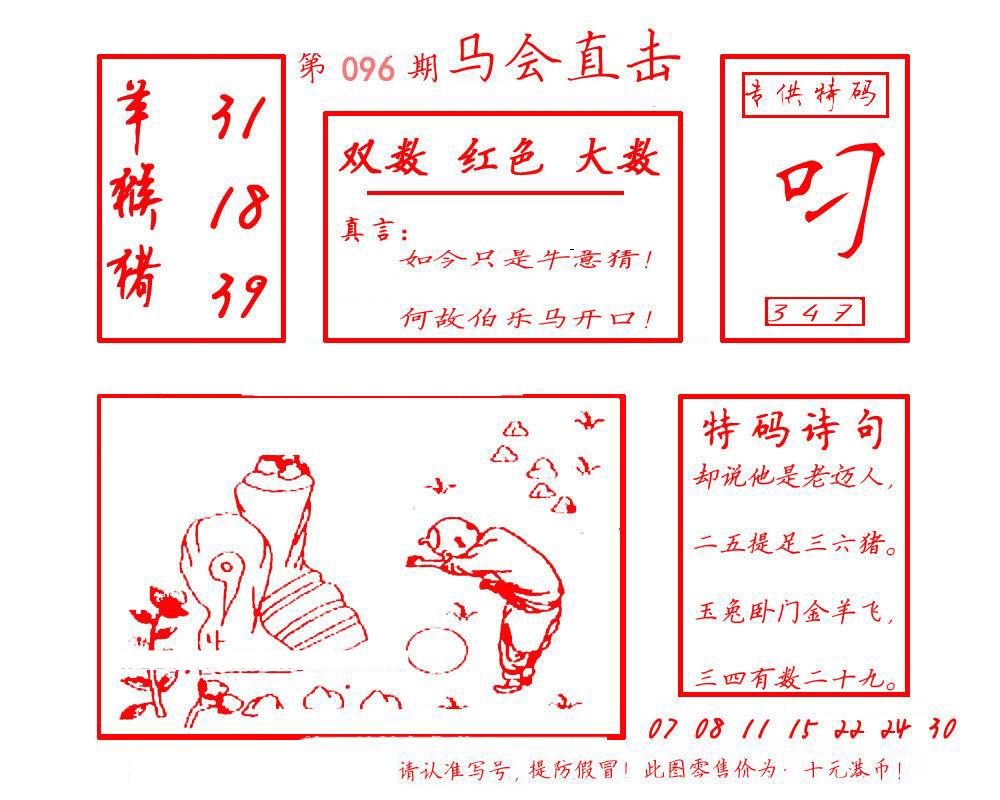 第 096 期 马会直击
羊 31
猴 18
猪 39
双数 红色 大数
真言：
如今只是牛意猜！
何故伯乐马开口！
专供特码
叼
3 4 7
特码诗句
却说他是老迈人，
二五提足三六猪。
玉兔卧门金羊飞，
三四有数二十九。
07 08 11 15 22 24 30
请认准写号，提防假冒！此图零售价为·十元港币！